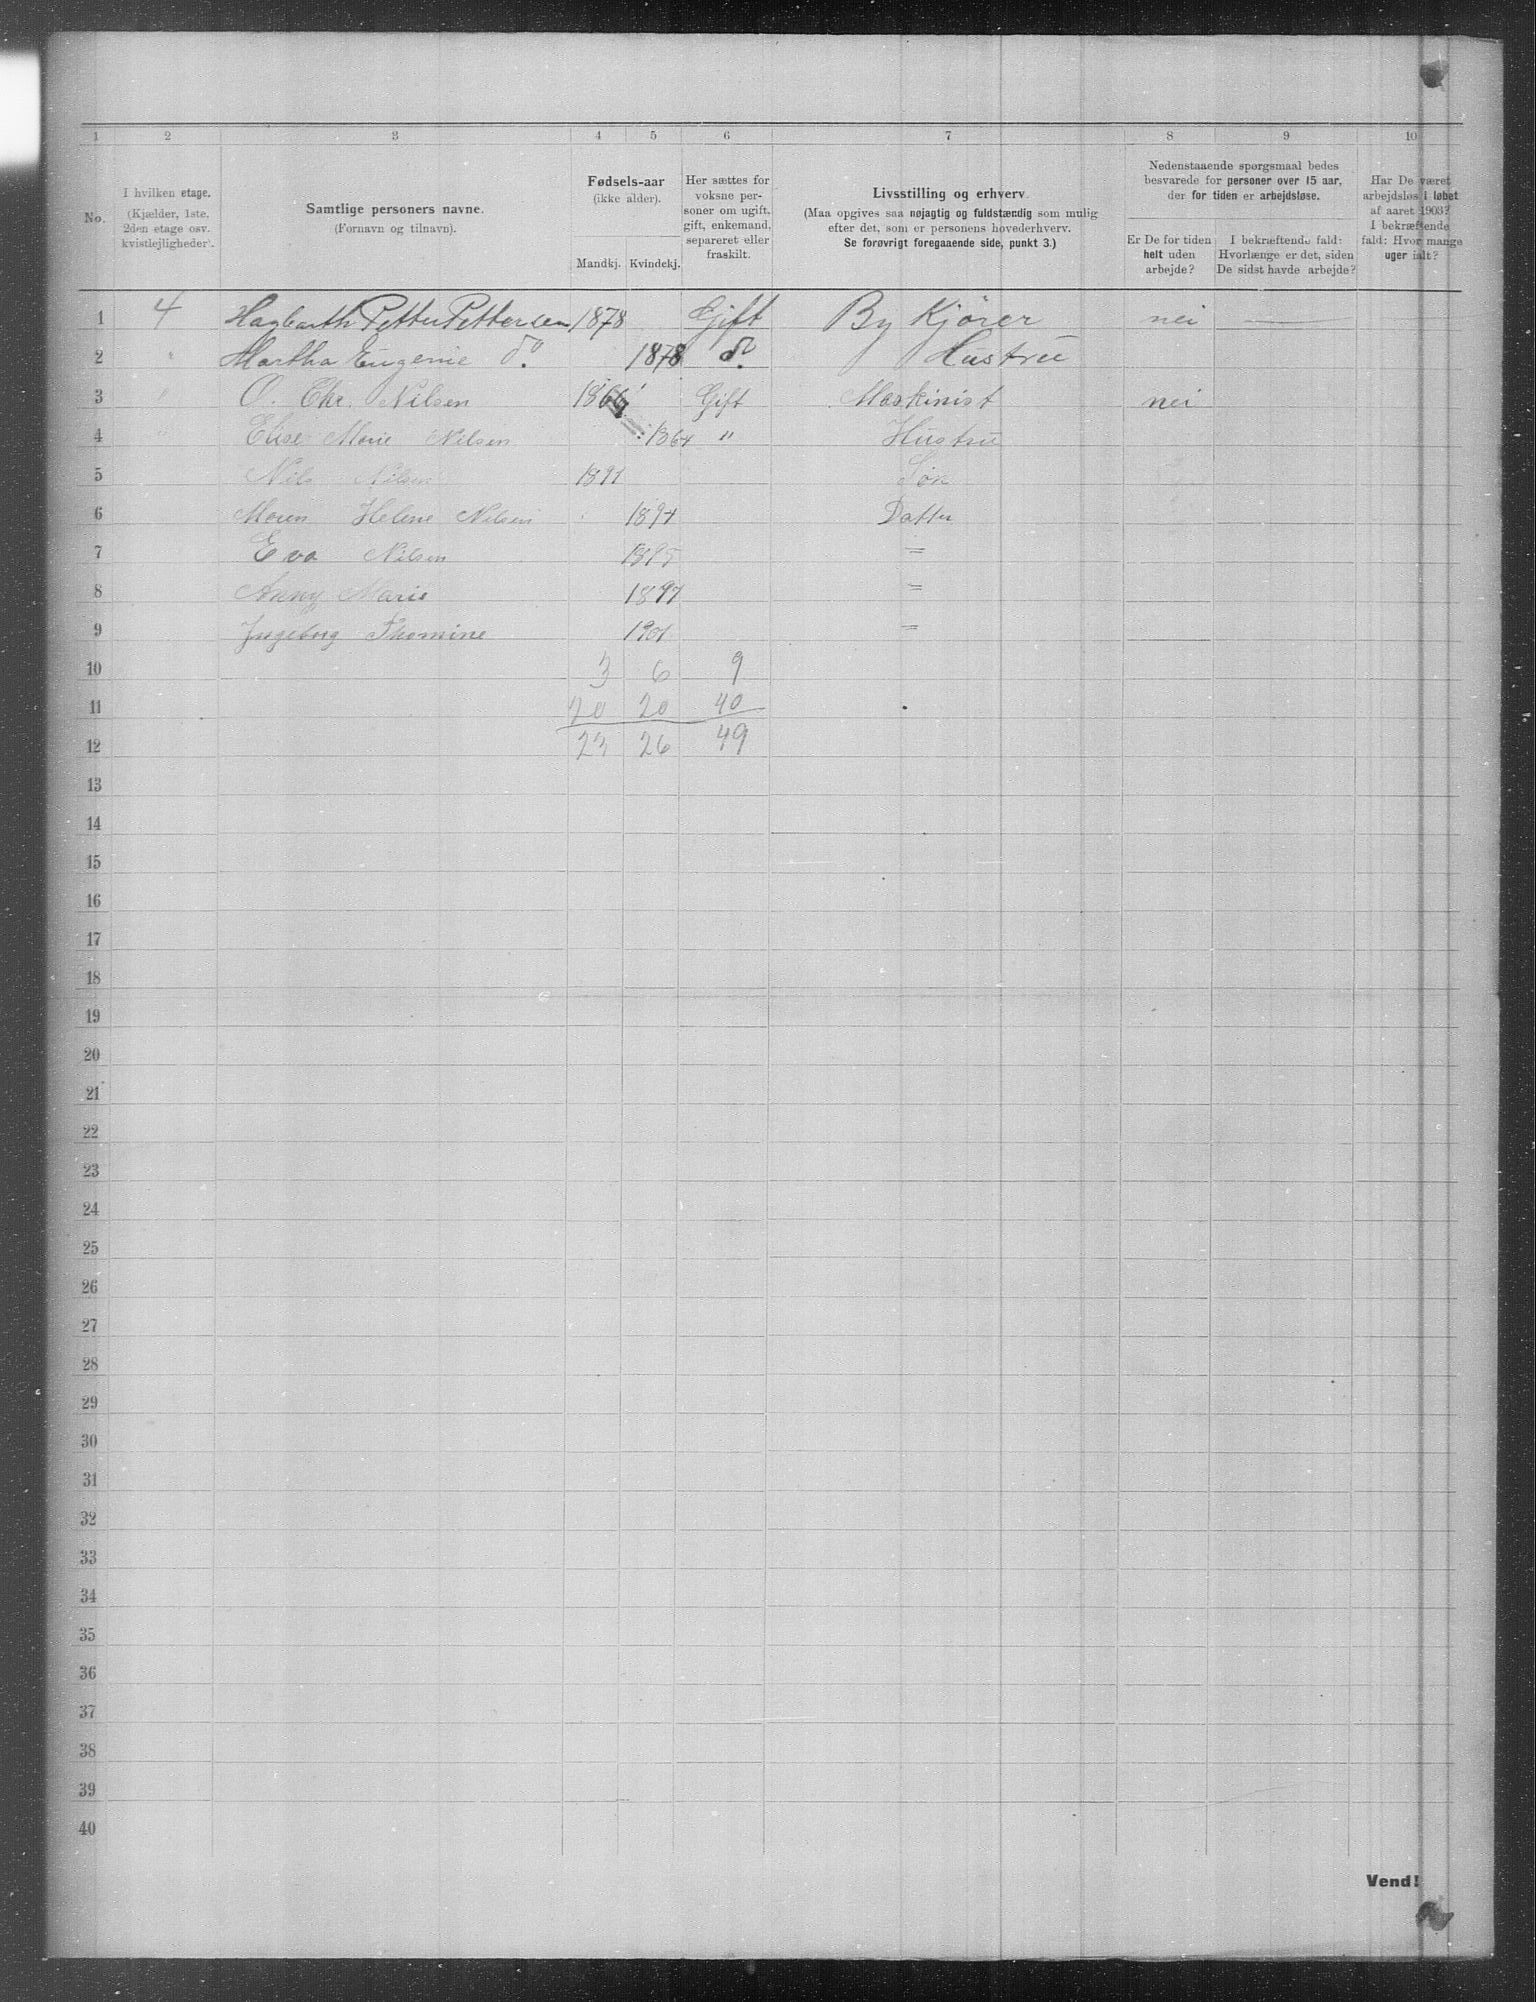 1 2 3 4 5 6 7 8 9 10
No.
I hvilken etage.
(Kjælder, 1ste,
2den etage osv.
kvistlejligheder).
Samtlige personers navne.
(Fornavn og tilnavn).
Fødsels-aar
(ikke alder).
Mandkj. Kvindekj.
Her sættes for
voksne per-
soner om ugift,
gift, enkemand,
separeret eller
fraskilt.
Livsstilling og erhverv.
(Maa opgives saa nøjagtig og fuldstændig som mulig
efter det, som er personens hovederhverv.
Se forøvrigt foregaaende side, punkt 3.)
Nedenstaaende spørgsmaal bedes
besvarede for personer over 15 aar,
der for tiden er arbejdsløse.
Er De for tiden
helt uden
arbejde?
I bekræftende fald:
Hvorlænge er det, siden
De sidst havde arbejde?
Har De været
arbejdsløs i løbet
af aaret 1903?
I bekræftende
fald: Hvor mange
uger ialt?
1 4 Hagbarth Petter Pettersen 1878 Gift By Kjører nei
2 " Martha Eugenie do. 1878 do. Hustru
3 " O. Chr. Nilsen 1866 Gift Maskinist nei
4 " Elise Marie Nilsen 1864 " Hustru
5 Nils Nilsen 1891 Søn
6 Maren Helene Nilsen 1894 Datter
7 Eva Nilsen 1895 =
8 Anny Marie 1897 =
9 Ingeborg Thomine 1901 =
10 3 6 9
11 20 20 40
12 23 26 49
13
14
15
16
17
18
19
20
21
22
23
24
25
26
27
28
29
30
31
32
33
34
35
36
37
38
39
40
Vend!